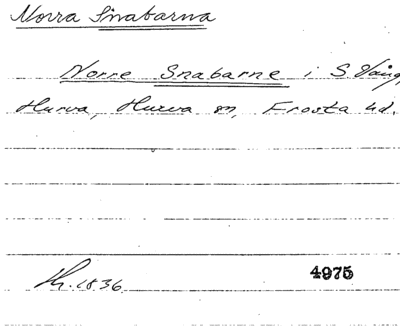 Norra Snabarna
Norre Snabarne i S. Vång,
Hurva, Hurva sn, Frosta hd.
Kh. 1836. 4975